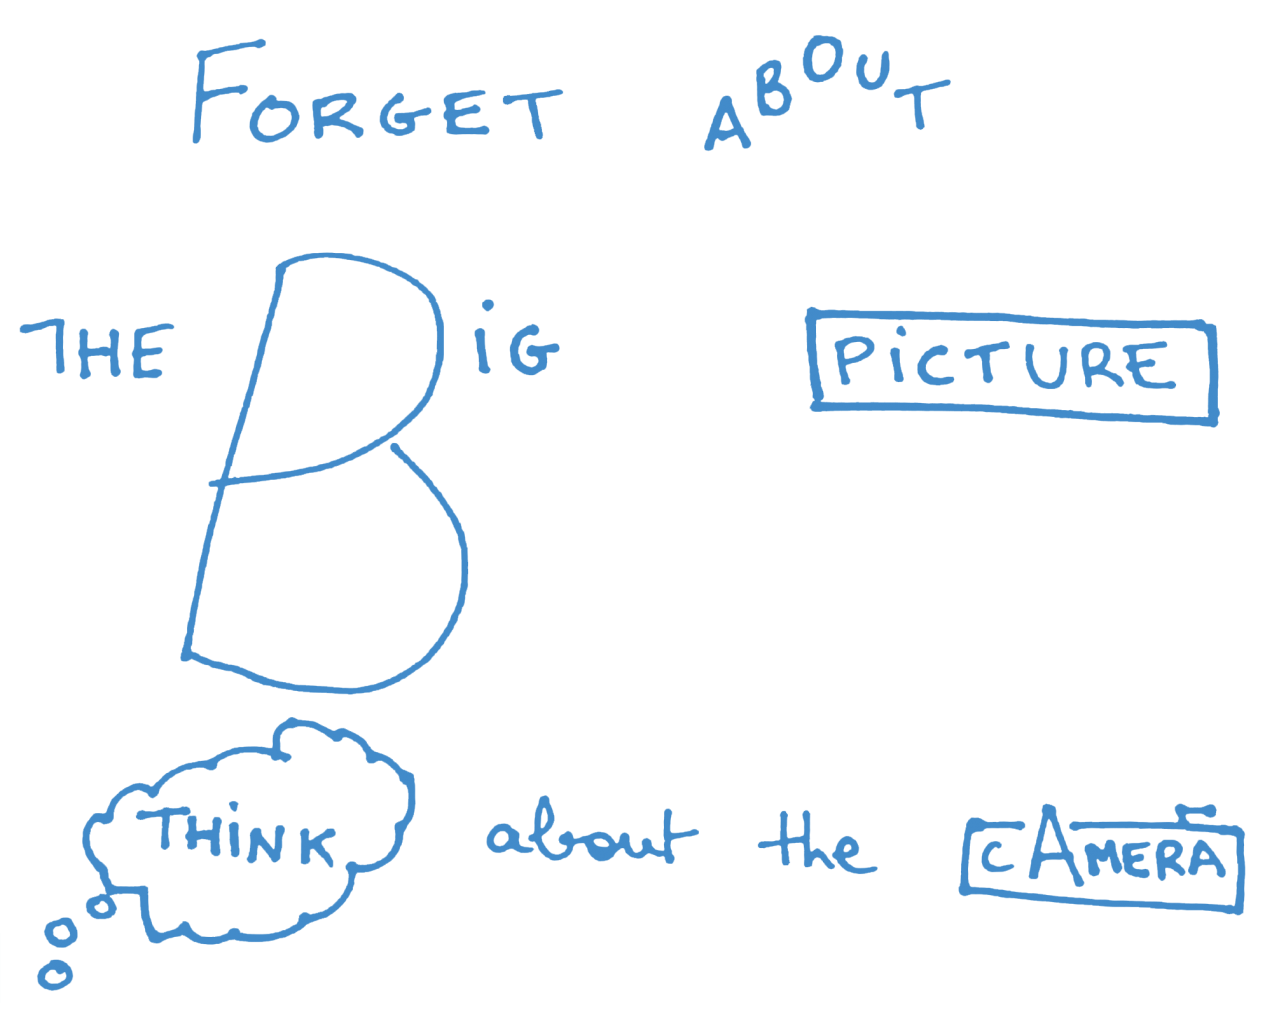 FORGET ABOUT
THE BiG PiCTURE
THiNK about the cAMERA